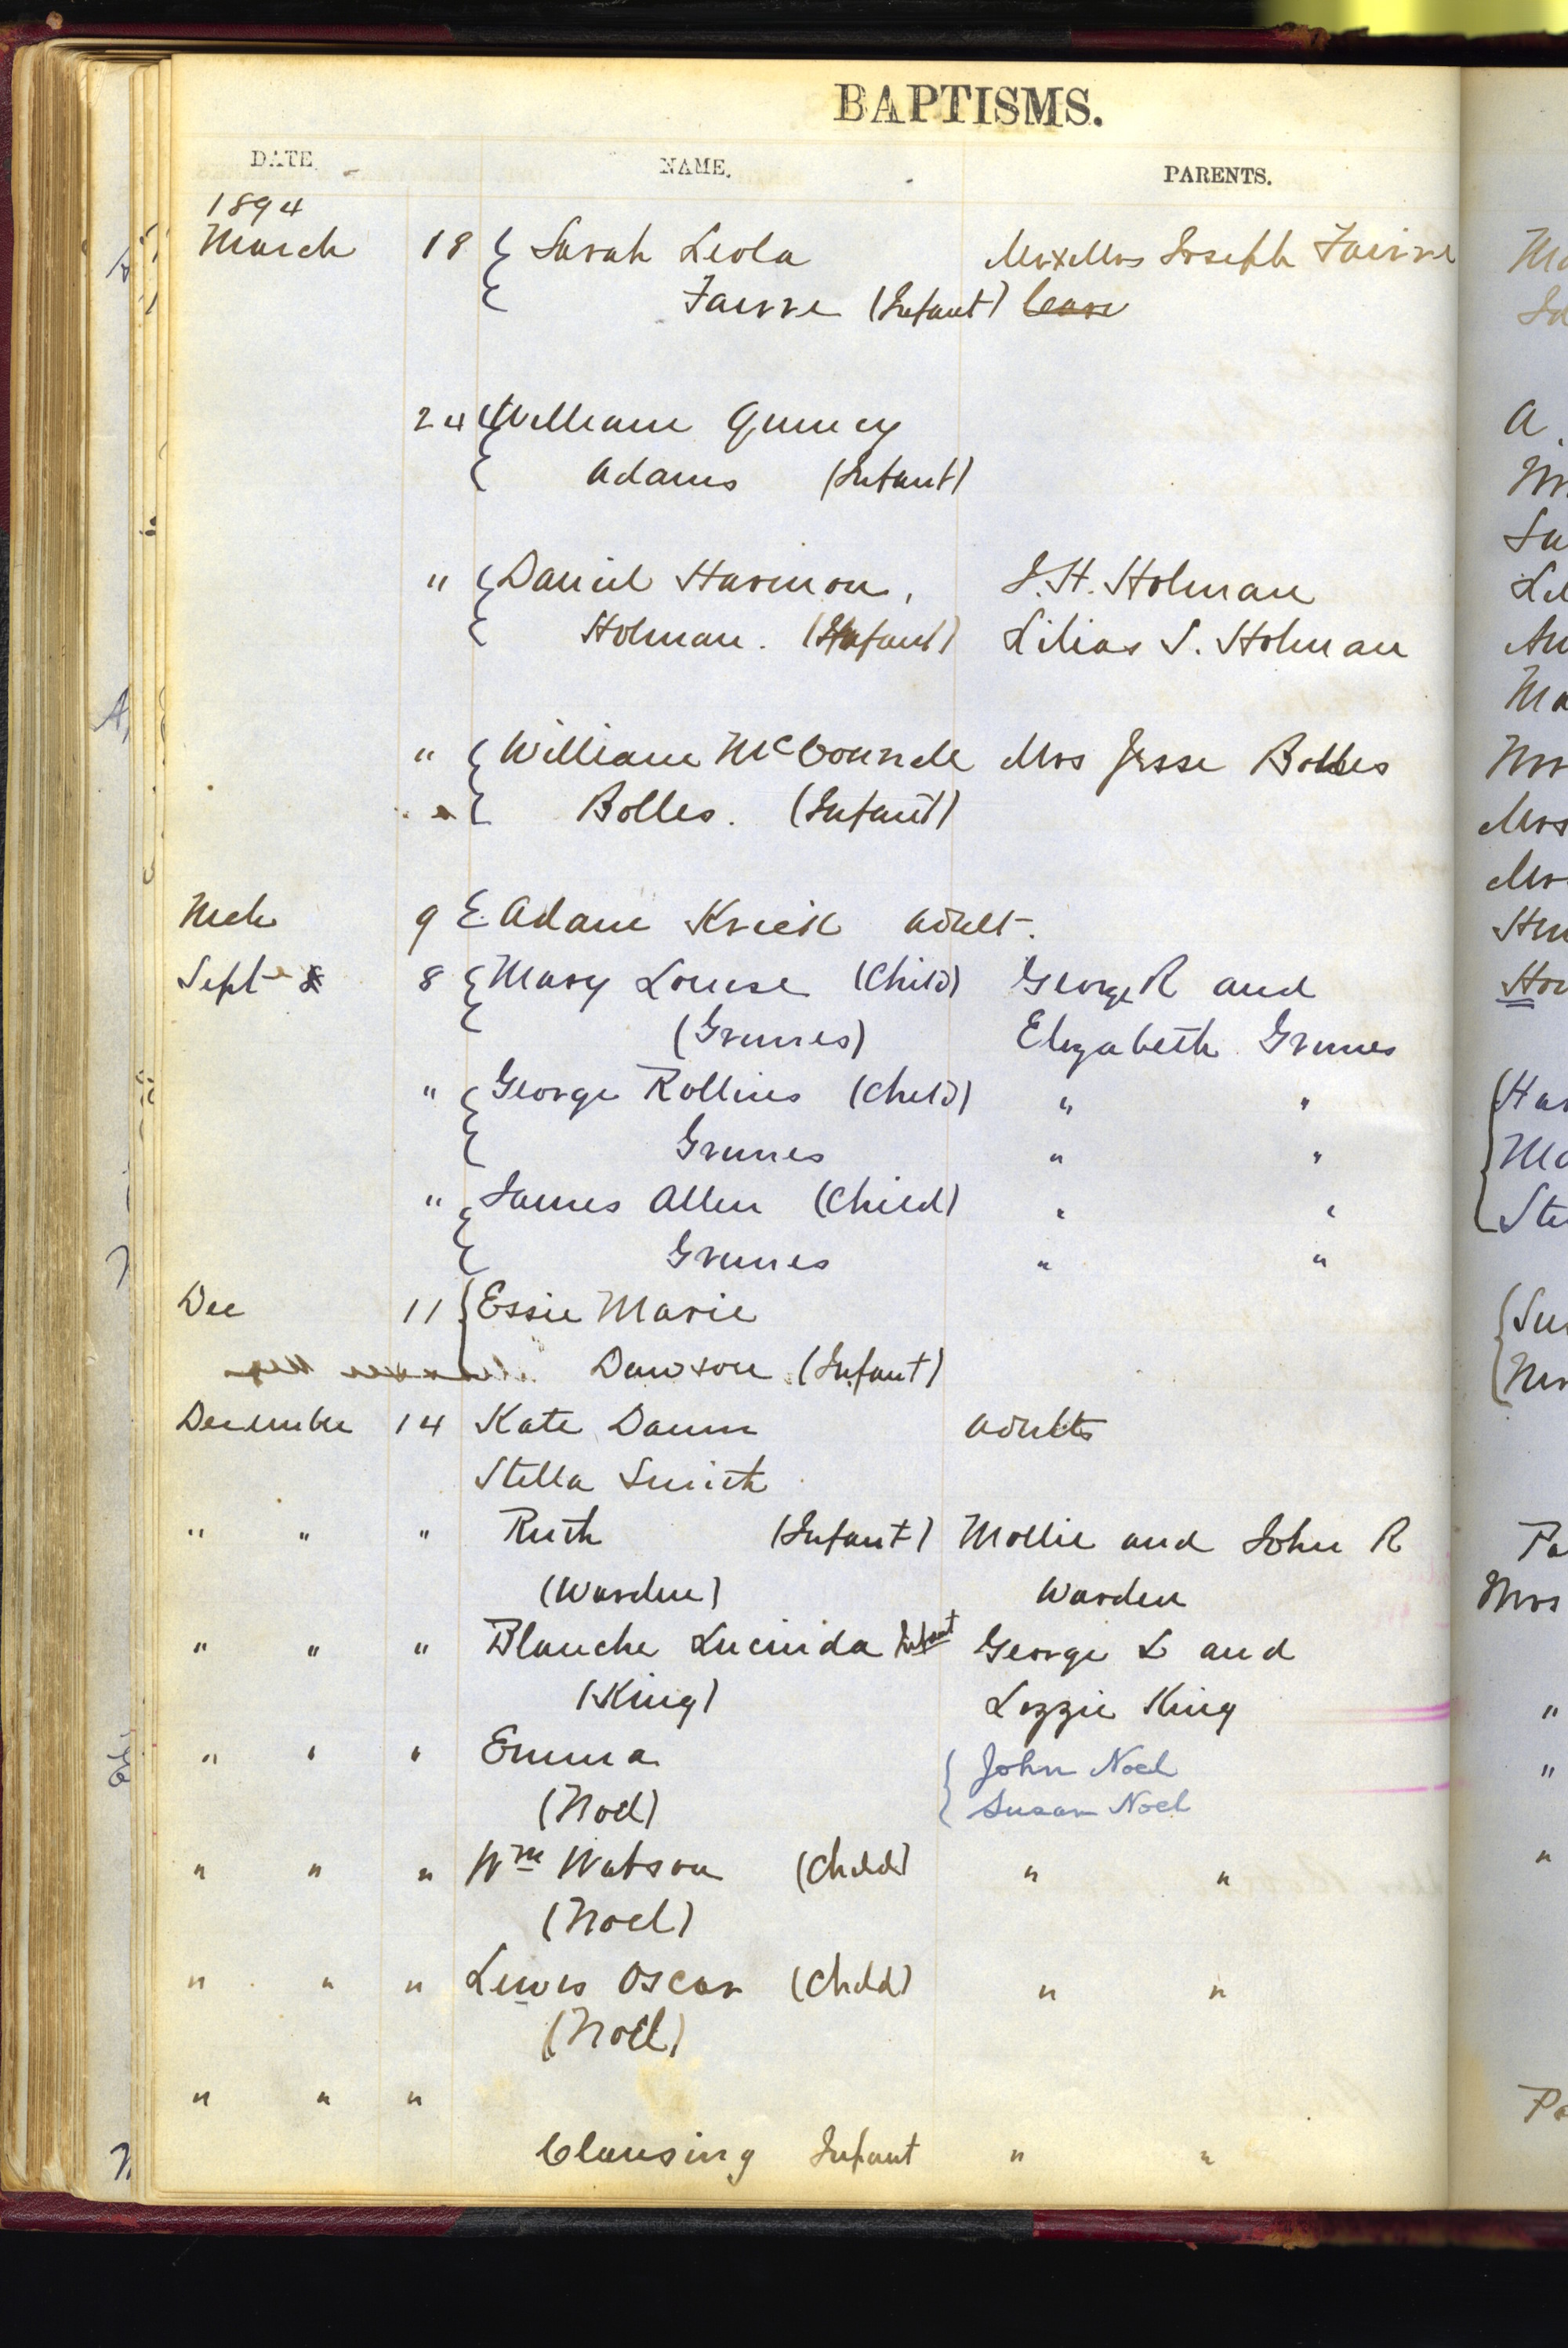 BAPTISMS.
DATE NAME. PARENTS.
1894
March 18 { Sarah Leola Mr x Mrs Joseph Fairre
{ Fairre (Infant)
24 { William Quincy
{ Adams (Infant)
" { Daniel Harmon, J. H. Holman
{ Holman. (Infant) Lilias S. Holman
" { William McConnell Mrs Jesse Bolles
{ Bolles. (Infant)
Mch 9 { Adam Krick adult.
Sept 8 { Mary Louise (Child) George R and
{ (Grimes) Elizabeth Grimes
" { George Rollins (Child) " "
{ Grimes " "
" { James Allen (Child) " "
{ Grimes " "
Dec 11 { Essie Marie
Dawson (Infant)
December 14 Kate Daum adults
Stella Smith
" " " Ruth (Infant) Mollie and John R
(Warden) Warden
" " " Blanche Lucinda Infant George L and
(King) Lizzie King
" " " Emma { John Noel
(Noel) { Susan Noel
" " " Wm Watson (Child) " "
(Noel)
" " " Lewis Oscar (Child) " "
(Noel)
" " "
Clausing Infant " "